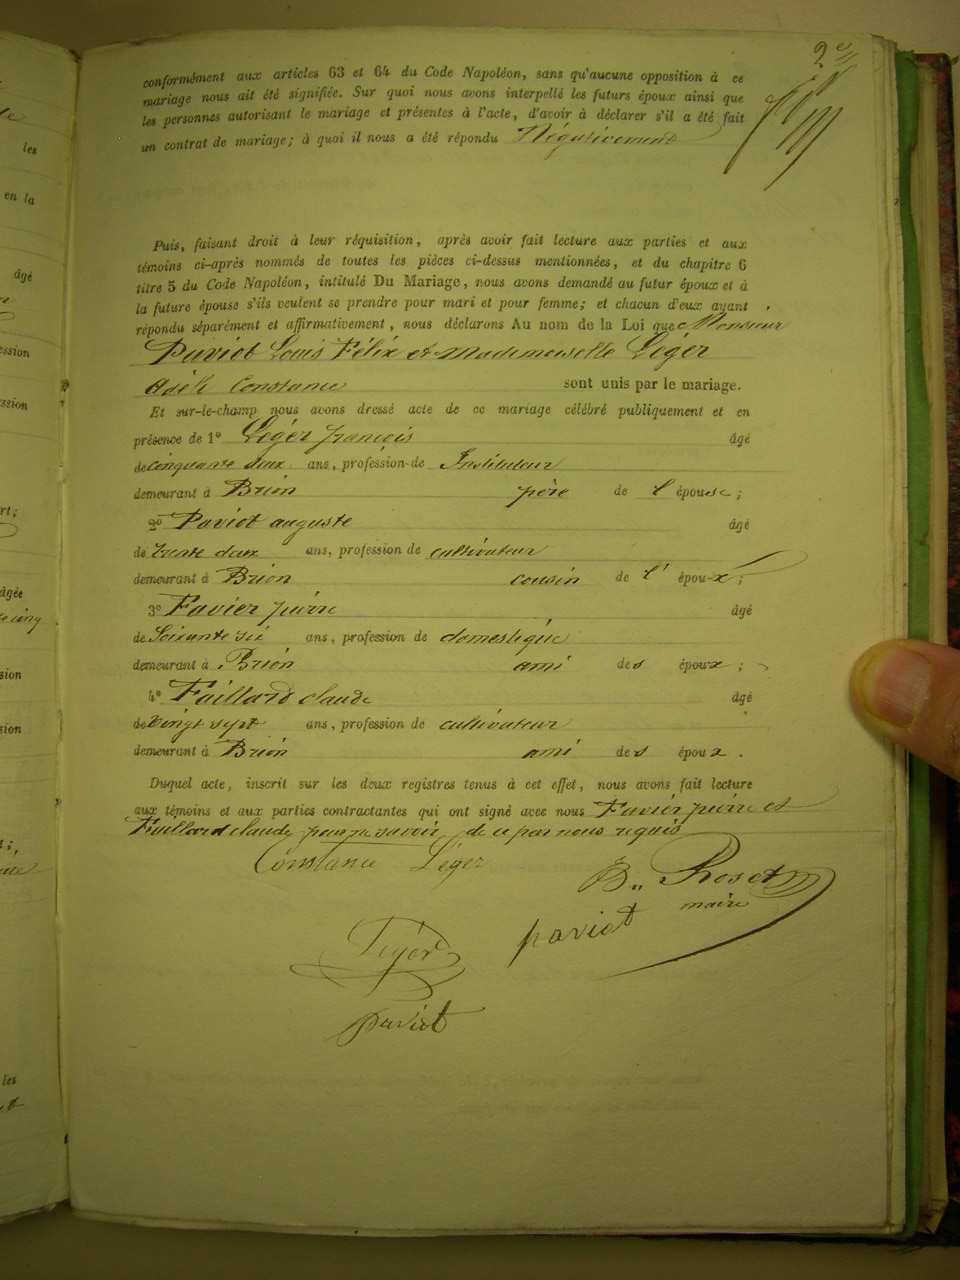 2e
conformément aux articles 63 et 64 du Code Napoléon, sans qu'aucune opposition à ce
mariage nous ait été signifiée. Sur quoi nous avons interpellé les futurs époux ainsi que
les personnes autorisant le mariage et présentes à l'acte, d'avoir à déclarer s'il a été fait
un contrat de mariage; à quoi il nous a été répondu Négativement
Puis, faisant droit à leur réquisition, après avoir fait lecture aux parties et aux
témoins ci-après nommés de toutes les pièces ci-dessus mentionnées, et du chapitre 6
titre 5 du Code Napoléon, intitulé Du Mariage, nous avons demandé au futur époux et à
la future épouse s'ils veulent se prendre pour mari et pour femme; et chacun d'eux ayant
répondu séparément et affirmativement, nous déclarons Au nom de la Loi que Monsieur
Paviot Louis Félix et Mademoiselle Léger
Adèle Constance sont unis par le mariage.
Et sur-le-champ nous avons dressé acte de ce mariage célébré publiquement et en
présence de 1° Léger françois âgé
de cinquante deux ans, profession de Instituteur
demeurant à Brion père de l'épouse;
2° Paviot auguste âgé
de trente deux ans, profession de cultivateur
demeurant à Brion cousin de l' époux;
3° Favier pierre âgé
de Soixante six ans, profession de domestique
demeurant à Brion ami des époux;
4° Faillard claude âgé
de Vingt sept ans, profession de cultivateur
demeurant à Brion ami des époux.
Duquel acte, inscrit sur les deux registres tenus à cet effet, nous avons fait lecture
aux témoins et aux parties contractantes qui ont signé avec nous Favier pierre et
Faillard claude pour ne savoir de ce par nous requis
Constance Léger
B. Roset
maire
paviot
Léger
paviot